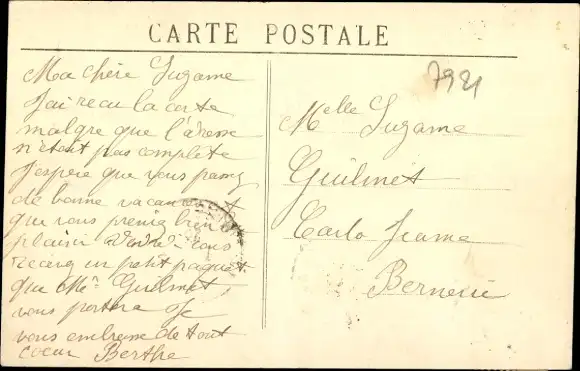 CARTE POSTALE
7981
Ma chère Suzanne
J'ai recu la carte
malgre que l'adresse
n'etait pas complete
J'espere que vous passez
de bonne vacances et
que vous prenez bien
plaisir vous
recevez un petit paquet
que Mr Guilmet
vous portera Je
vous embrasse de tout
coeur Berthe
Melle Suzanne
Guilmet
Carlo Jeanne